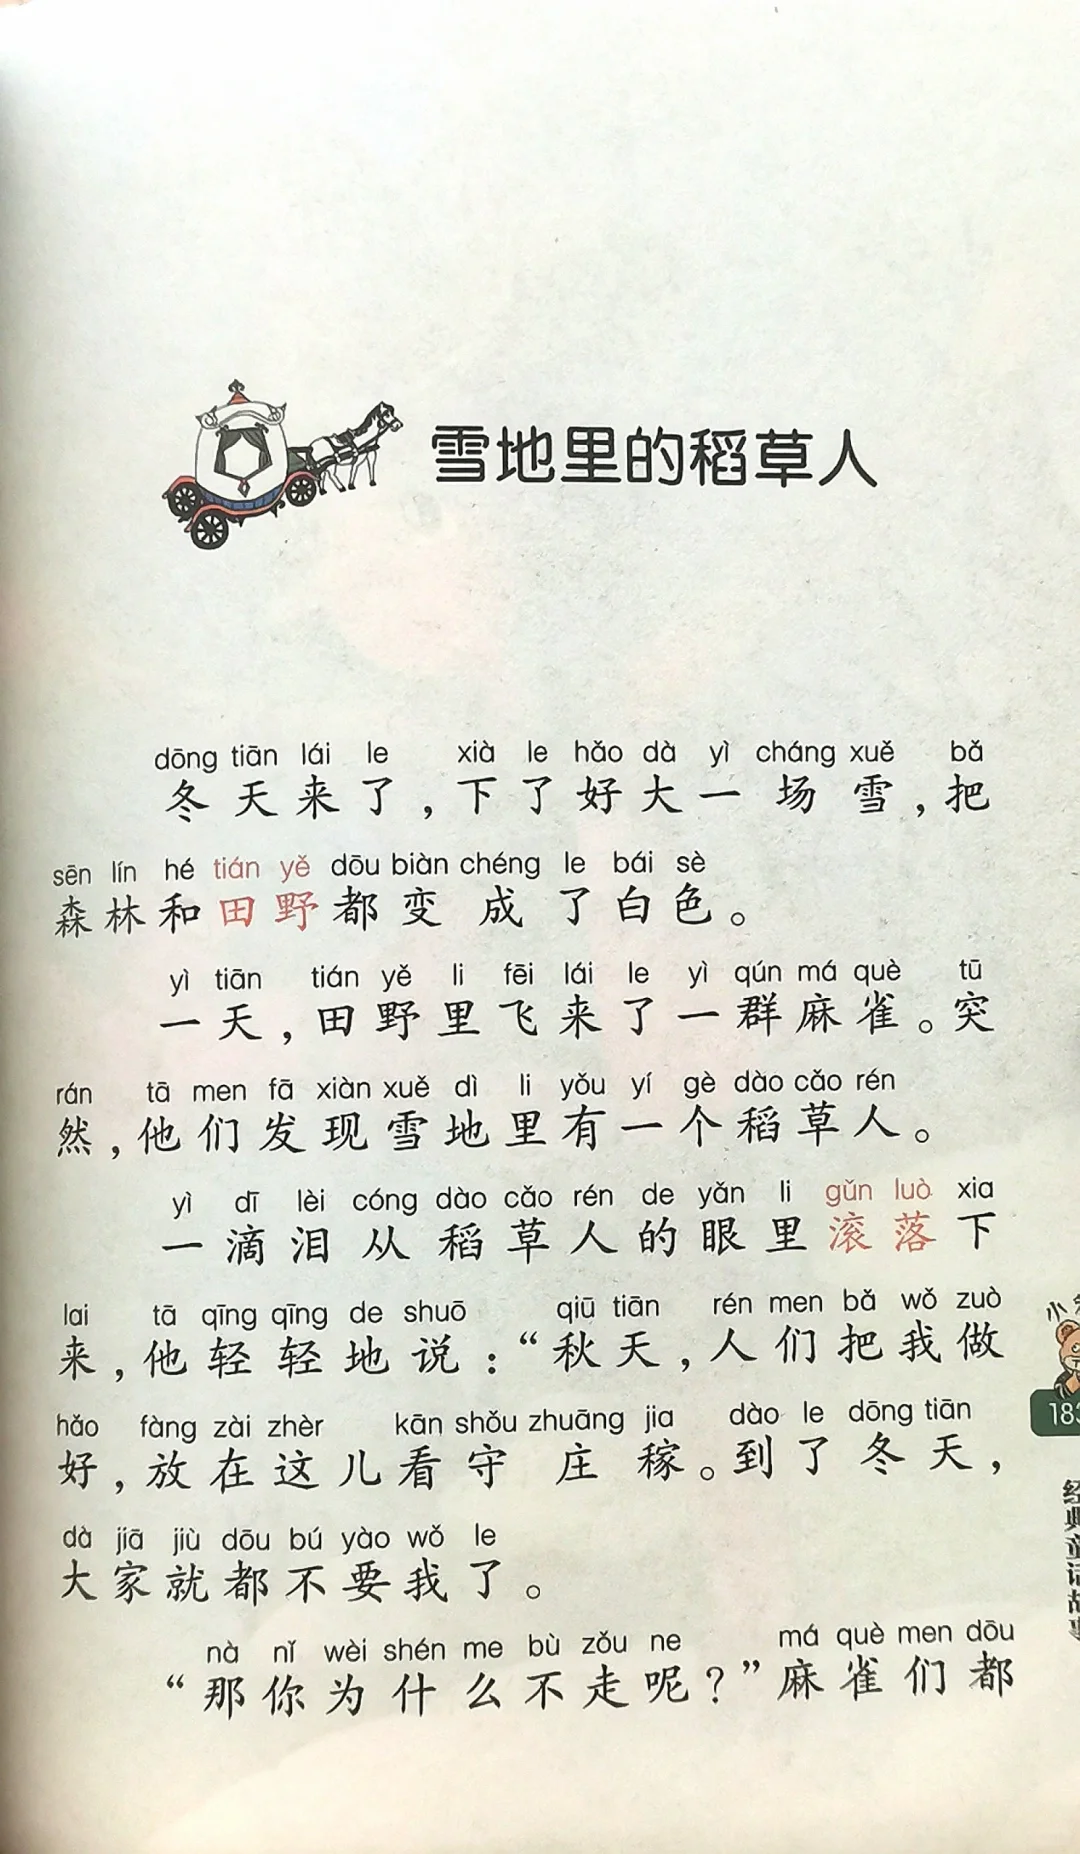 雪地里的稻草人
dōng tiān lái le xià le hǎo dà yì cháng xuě bǎ
冬天来了，下了好大一场雪，把
sēn lín hé tián yě dōu biàn chéng le bái sè
森林和田野都变成了白色。
yì tiān tián yě li fēi lái le yì qún má què tū
一天，田野里飞来了一群麻雀。突
rán tā men fā xiàn xuě dì li yǒu yí gè dào cǎo rén
然，他们发现雪地里有一个稻草人。
yì dī lèi cóng dào cǎo rén de yǎn li gǔn luò xia
一滴泪从稻草人的眼里滚落下
lai tā qīng qīng de shuō qiū tiān rén men bǎ wǒ zuò
来，他轻轻地说：“秋天，人们把我做
hǎo fàng zài zhèr kān shǒu zhuāng jia dào le dōng tiān
好，放在这儿看守庄稼。到了冬天，
dà jiā jiù dōu bú yào wǒ le
大家就都不要我了。
nà nǐ wèi shén me bù zǒu ne má què men dōu
“那你为什么不走呢？”麻雀们都
183
经典童话故事